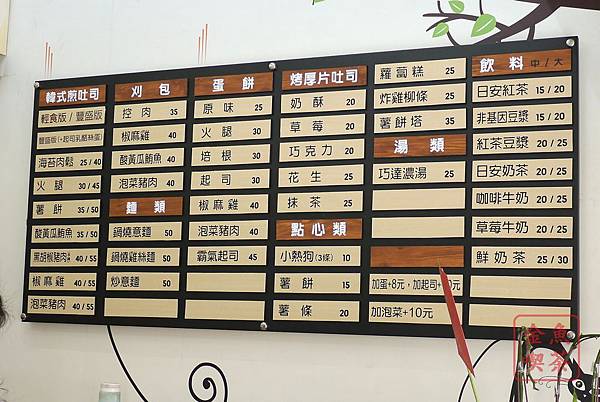 韓式煎吐司
輕食版 / 豐盛版
豐盛版(+起司乳酪絲蛋)
海苔肉鬆 25 / 40
火腿 30 / 45
薯餅 35 / 50
酸黃瓜鮪魚 35 / 50
黑胡椒豬肉 40 / 55
椒麻雞 40 / 55
泡菜豬肉 40 / 55
刈包
控肉 35
椒麻雞 40
酸黃瓜鮪魚 40
泡菜豬肉 40
麵類
鍋燒意麵 50
鍋燒雞絲麵 50
炒意麵 50
蛋餅
原味 25
火腿 30
培根 30
起司 30
椒麻雞 40
泡菜豬肉 40
霸氣起司 45
烤厚片吐司
奶酥 20
草莓 20
巧克力 20
花生 25
抹茶 25
點心類
小熱狗(3條) 10
薯餅 15
薯條 20
蘿蔔糕 25
炸雞柳條 25
薯餅塔 35
湯類
巧達濃湯 25
加蛋+8元，加起司+10元
加泡菜+10元
飲料 中 / 大
日安紅茶 15 / 20
非基因豆漿 15 / 20
紅茶豆漿 20 / 25
日安奶茶 20 / 25
咖啡牛奶 20 / 25
草莓牛奶 20 / 25
鮮奶茶 25 / 30
金魚
喫茶